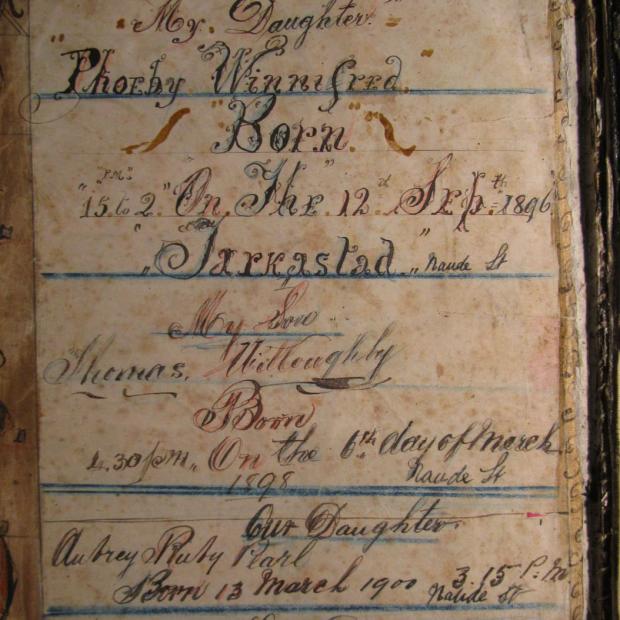 "My Daughter."
Phoeby Winnifred
"Born"
P.M.
"15 to 2" "On The 12 Sep. th 1896
"Tarkastad" Naude St
My Son
Thomas. Willoughby
Born
4.30 pm. On the 6th day of March
1898 Naude St
Our Daughter.
Aubrey Ruby Pearl
Born 13 March 1900 3.15 P.M
Naude St